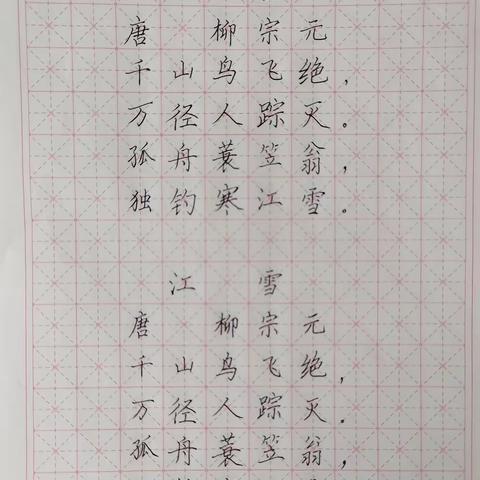 唐 柳宗元
千山鸟飞绝，
万径人踪灭。
孤舟蓑笠翁，
独钓寒江雪。
江 雪
唐 柳宗元
千山鸟飞绝，
万径人踪灭.
孤舟蓑笠翁，